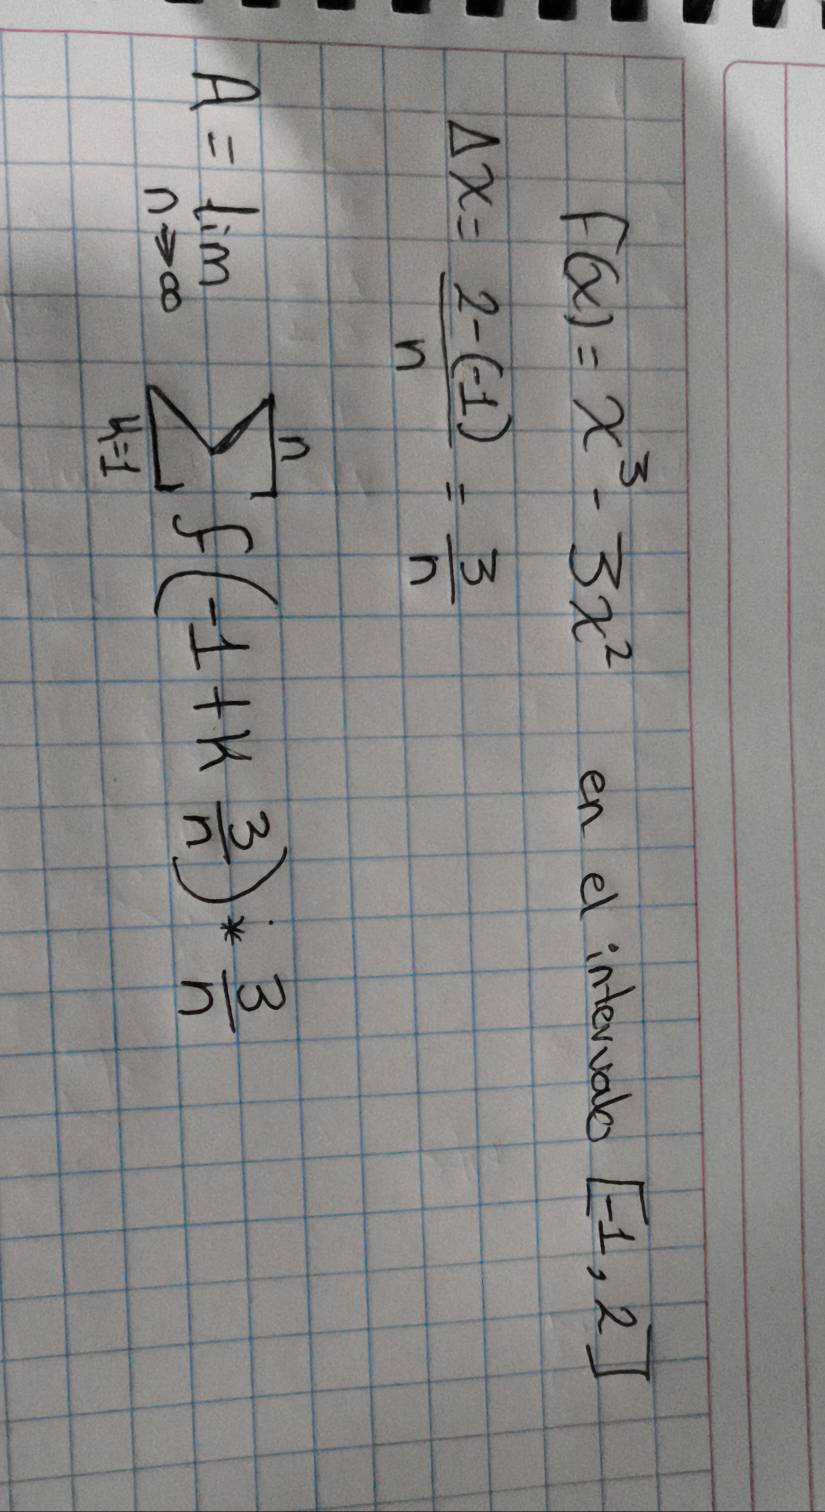 F(x) = x³ - 3x² en el intervalo [-1, 2]
Δx = \frac{2-(-1)}{n} = \frac{3}{n}
A = \lim_{n→∞} \sum_{k=1}^{n} f(-1 + k \frac{3}{n}) * \frac{3}{n}